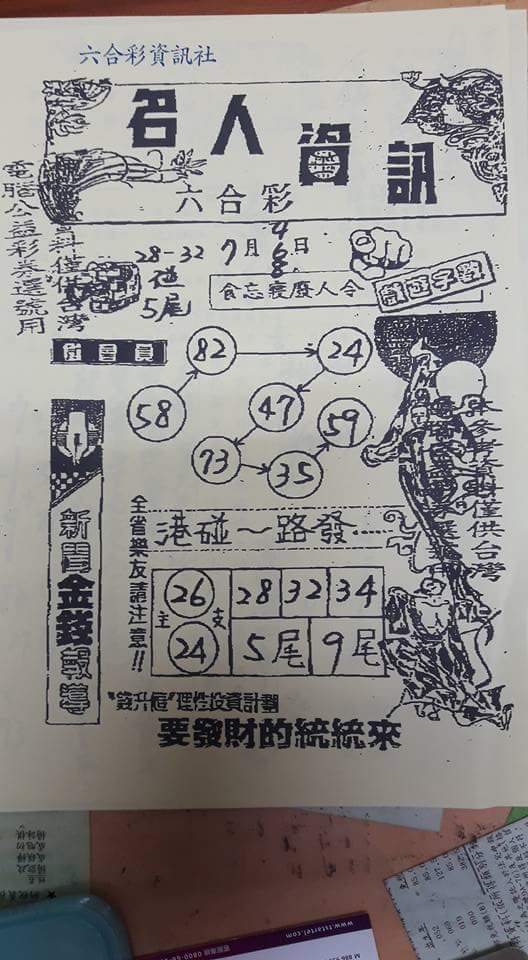 六合彩資訊社
名人資訊
六合彩
28-32
碰
5尾
7月
4
6
8
日
食忘寢廢人令
電腦公益彩券選號用
資料僅供台灣
會員
82
24
58
47
59
73
35
本參考資料僅供台灣
新聞金錢報導
全省樂友請注意!!
港碰~路發
主支
26
28 32 34
24
5尾 9尾
理性投資計劃
要發財的統統來
www.tstartel.com